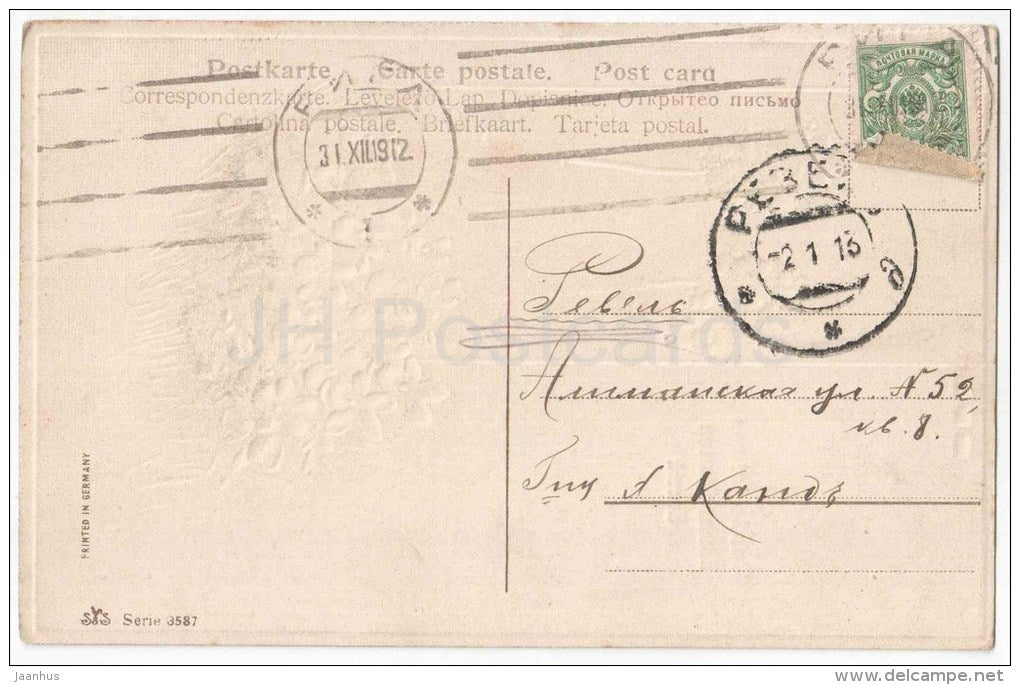 Postkarte. Carte postale. Post card
Correspondenzkarte. Levelező-Lap. Dopisnice. Открытео письмо
Cartolina postale. Briefkaart. Tarjeta postal.
31.XII.1912
ПОЧТОВАЯ МАРКА
РЕВЕ
-2 1 13
д
Ревель
ул. № 52,
кв. 8.
JH Postcards
PRINTED IN GERMANY
Serie 3587
jaanhus
www.delcampe.net